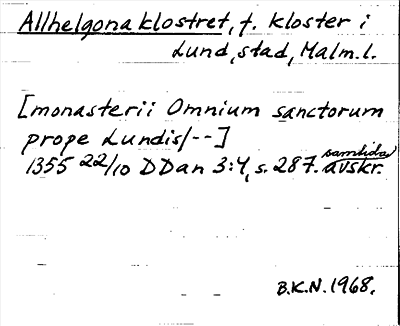 Allhelgonaklostret, f. kloster i
Lund, stad, Malm.l.
[monasterii Omnium sanctorum
prope Lundis/--]
1355 22/10 DDan 3:4, s. 287. samtida avskr.
B.K.N. 1968.